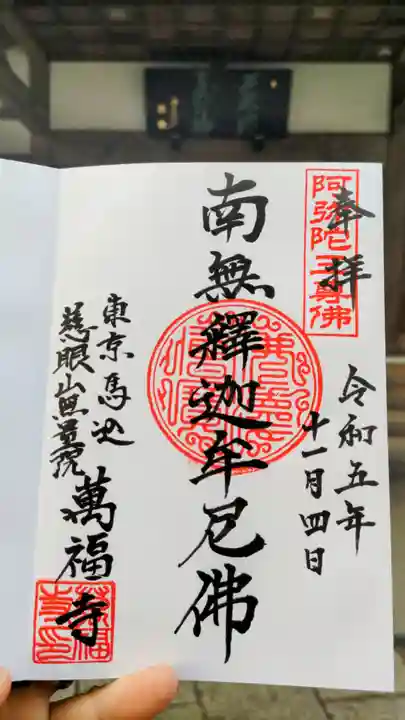 奉拝
阿弥陀三尊佛
令和五年
十一月四日
南無釋迦牟尼佛
東京馬込
慈眼山無量院
萬福寺